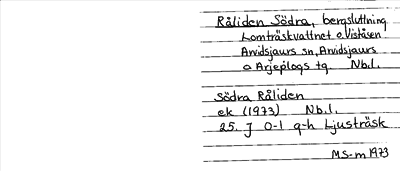 Råliden Södra, bergsluttning
Lomträskvattnet o. Viståsen
Arvidsjaurs sn, Arvidsjaurs
o Arjeplogs tg Nb.l.
Södra Råliden
ek (1973) Nb.l.
25. J 0-1 g-h Ljusträsk
MS-m 1973